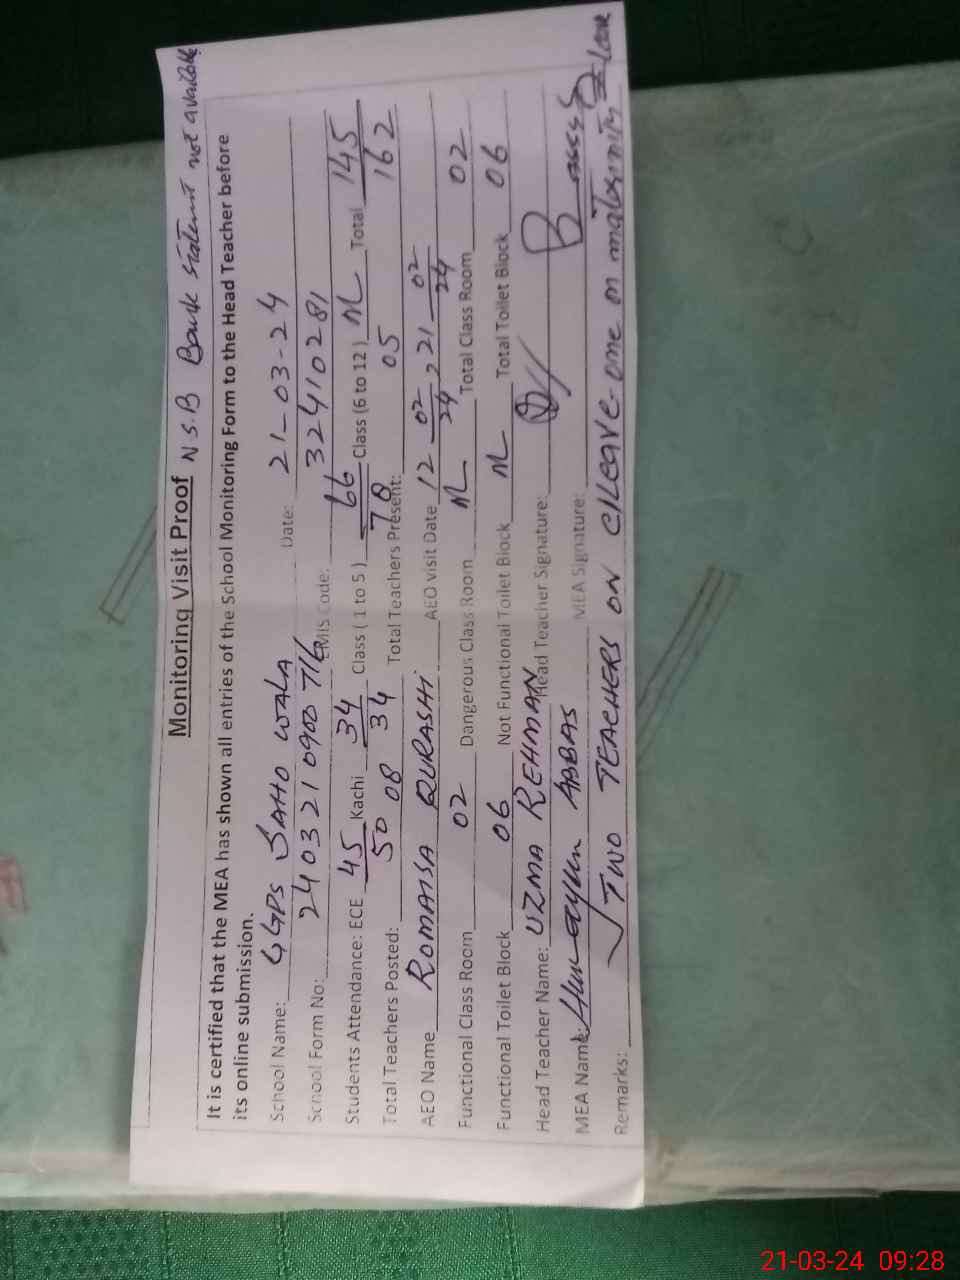 Monitoring Visit Proof N S.B Bank statemt not available
It is certified that the MEA has shown all entries of the School Monitoring Form to the Head Teacher before
its online submission.
School Name: GGPS SAHO WALA Date: 21-03-24
School Form No: 2403210900716 EMIS Code: 32410281
Students Attendance: ECE 45 Kachi 34 Class (1 to 5) 66 Class (6 to 12) NL Total 145
50 34 78 162
Total Teachers Posted: 08 Total Teachers Present: 05
AEO Name ROMAISA QURASHI AEO visit Date 12 02/24, 21 02/24
Functional Class Room 02 Dangerous Class Room NL Total Class Room 02
Functional Toilet Block 06 Not Functional Toilet Block NL Total Toilet Block 06
Head Teacher Name: UZMA REHMAN Head Teacher Signature:
MEA Name: Humayun ABBAS MEA Signature:
Remarks: TWO TEACHERS ON C/Leave-one on maternity Leave
21-03-24 09:28